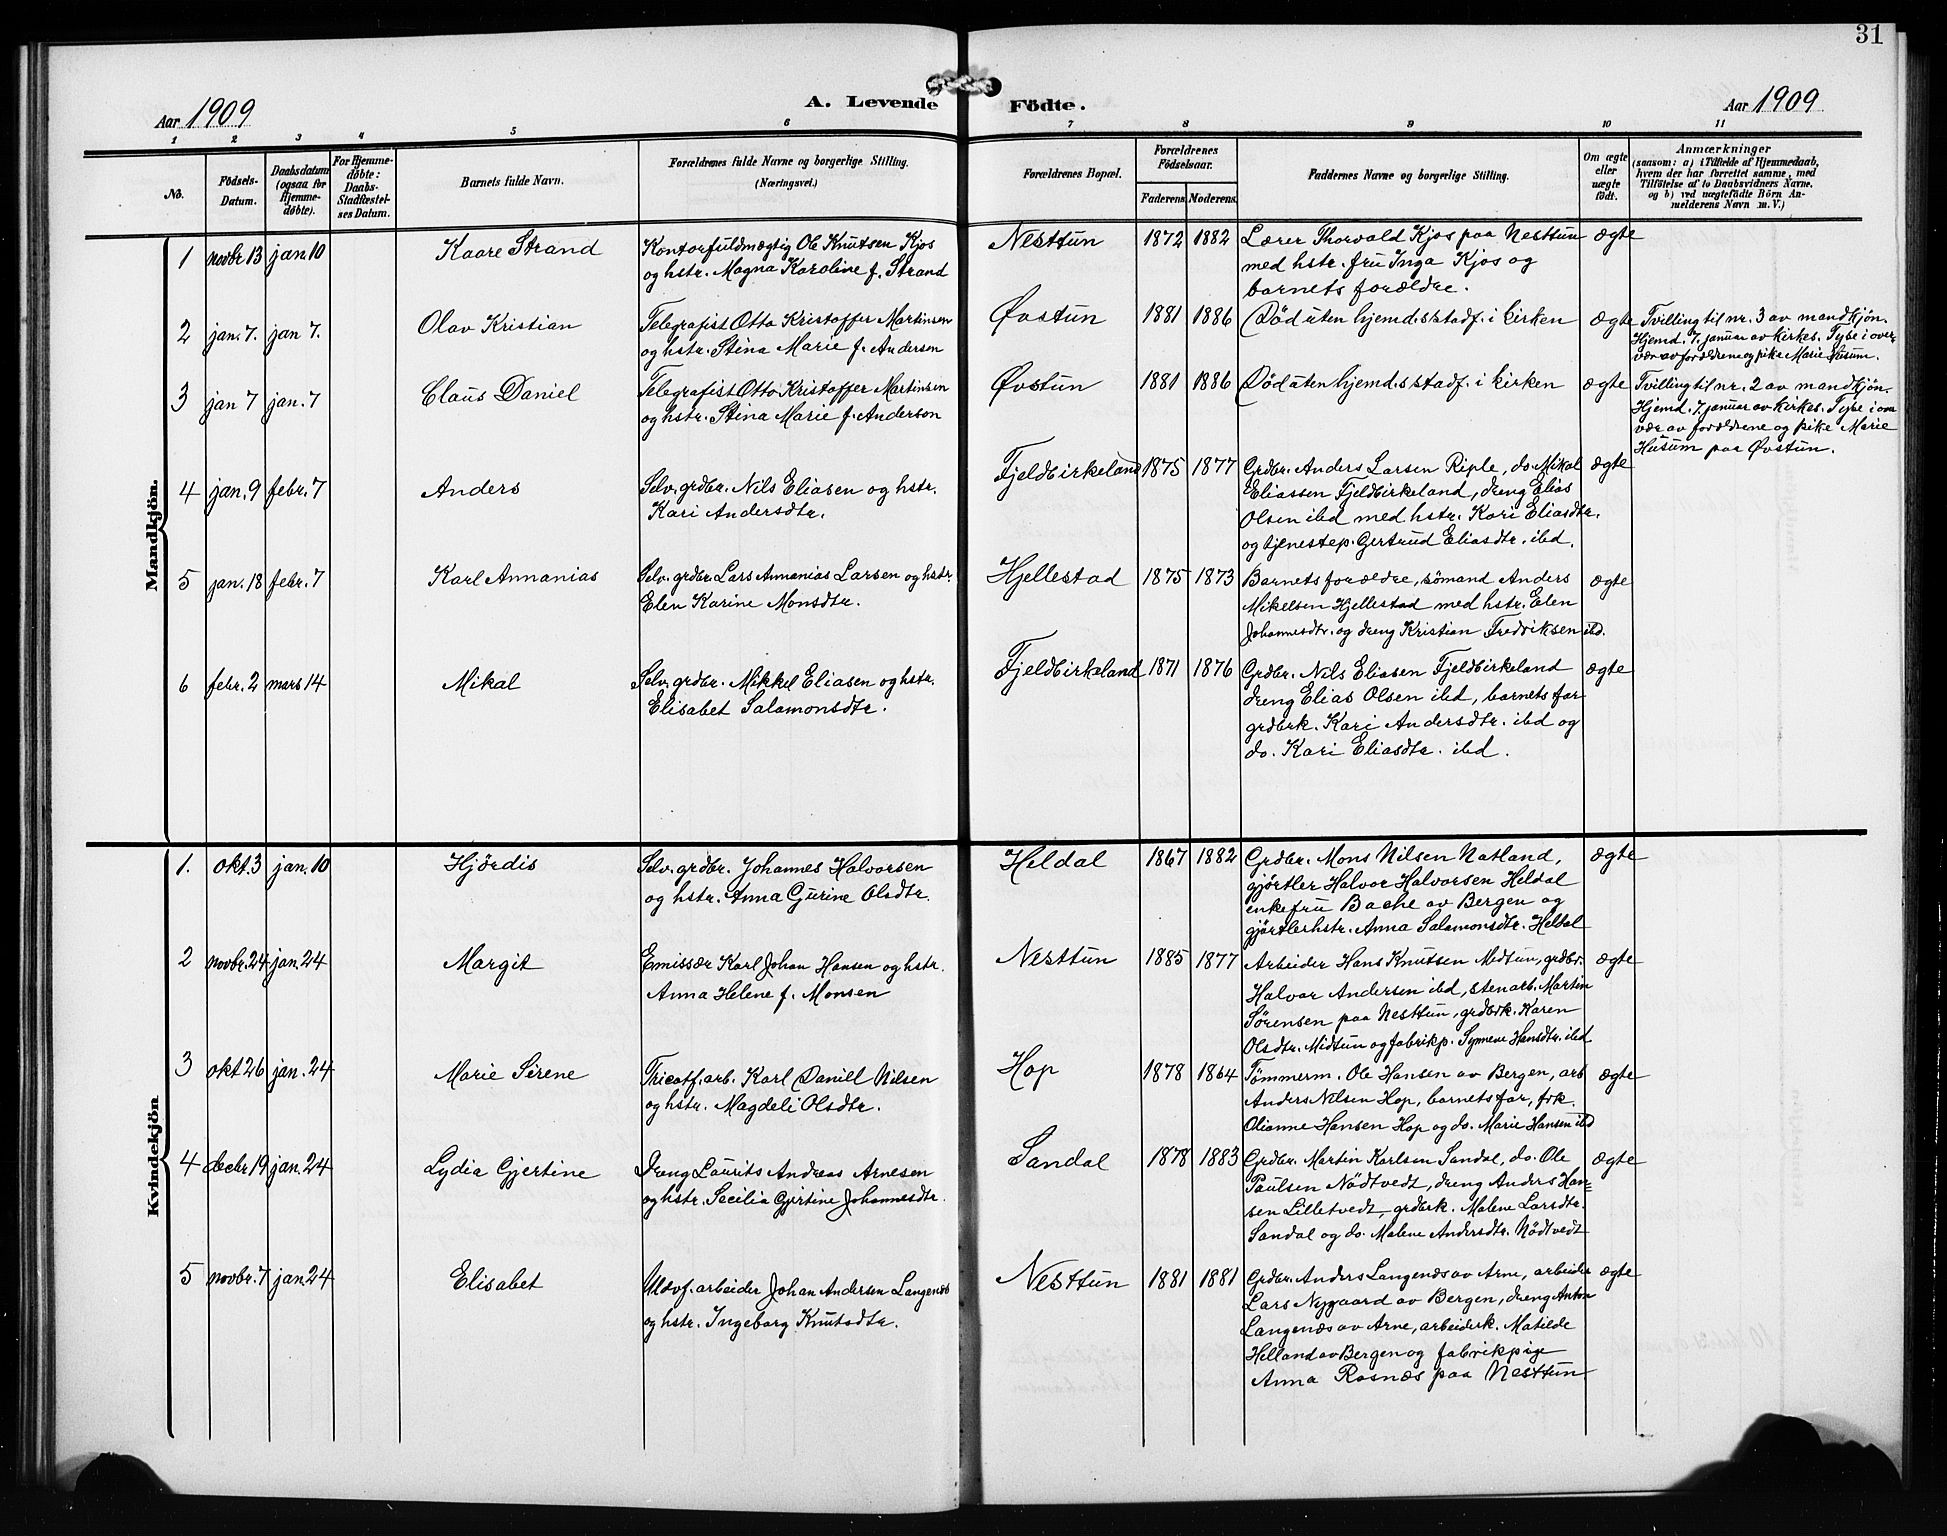 31
Aar 1909
A. Levende Födte.
Aar 1909
1 2 3 4 5 6 7 8 9 10 11
No.
Födsels-
Datum.
Daabsdatum
(ogsaa for
Hjemme-
døbte).
For Hjemme-
døbte:
Daabs-
Stadfæstel-
ses Datum.
Barnets fulde Navn.
Forældrenes fulde Navne og borgerlige Stilling.
(Næringsvei.)
Forældrenes Bopæl.
Forældrenes
Födselsaar.
Faderens Moderens
Faddernes Navne og borgerlige Stilling.
Om ægte
eller
uægte
født.
Anmærkninger
(saasom: a) i Tilfælde af Hjemmedaab,
hvem der har forrettet samme, med
Tilföielse af to Daabsvidners Navne,
og b) ved uægtefödte Börn An-
melderens Navn m. V.)
Mandkjön.
1 novbr. 13 jan 10 Kaare Strand
Kontorfuldmægtig Ole Knutsen Kjos
og hstr. Magna Karoline f. Strand
Nesttun 1872 1882
Lærer Thorvald Kjos paa Nesttun
med hstr. fru Inga Kjos og
barnets forældre.
ægte
2 jan. 7. jan 7. Olav Kristian
Telegrafist Otto Kristoffer Martinsen
og hstr. Stina Marie f. Andersen
Øvstun 1881 1886
Död uten hjemd.s stadf. i kirken
ægte
Tvilling til nr. 3 av mandkjön.
Hjemd. 7. januar av kirkes. Tybe i over-
vær av forældrene og pike Marie Husum.
3 jan 7 jan. 7 Claus Daniel
Telegrafist Otto Kristoffer Martinsen
og hstr. Stina Marie f. Anderson
Øvstun 1881 1886
Död uten hjemd.s stadf. i kirken
ægte
Tvilling til nr. 2 av mandkjön.
Hjemd. 7. januar av kirkes. Tybe i over
vær av forældrene og pike Marie
Husum paa Øvstun.
4 jan. 9 febr. 7 Anders
Selv. grdbr. Nils Eliasen og hstr.
Kari Andersdtr.
Fjeldbirkeland 1875 1877
Grdbr. Anders Larsen Riple, do. Mikal
Eliassen Fjeldbirkeland, dreng Elias
Olsen ibd med hstr. Kari Eliasdtr.
og tjenestep. Gertrud Eliasdtr. ibd.
ægte
5 jan. 18 febr. 7 Karl Annanias
Selv. grdbr. Lars Annanias Larsen og hstr.
Elen Karine Monsdtr.
Hjellestad 1875 1873
Barnets forældre, sömand Anders
Mikelsen Hjellestad med hstr. Elen
Johannesdtr. og dreng Kristian Fredriksen ibd.
ægte
6 febr. 2 mars 14 Mikal
Selv. grdbr. Mikkel Eliasen og hstr.
Elisabet Salamonsdtr.
Fjeldbirkeland 1871 1876
Grdbr. Nils Eliasen Fjeldbirkeland
dreng Elias Olsen ibd, barnets far
grdbrk. Kari Andersdtr. ibd og
do. Kari Eliasdtr. ibd.
ægte
Kvindekjön
1. okt. 3 jan. 10 Hjørdis
Selv. grdbr. Johannes Halvorsen
og hstr. Anna Gurine Olsdtr.
Heldal 1867 1882
Grdbr. Mons Nilsen Natland,
gjørtler Halvor Halvorsen Heldal
enkefru Bache av Bergen og
gjørtlerhstr. Anna Salamonsdtr. Heldal
ægte
2 novbr. 24 jan. 24 Margit
Emissær Karl Johan Hansen og hstr.
Anna Helene f. Monsen
Nesttun 1885 1877
Arbeider Hans Knutsen Midtun, grdbr.
Halvor Andersen ibd, stenarb. Martin
Sörensen paa Nesttun, grdbrk. Karen
Olsdtr. Midtun og fabrikp. Synneve Hansdtr. ibd
ægte
3 okt 26 jan. 24 Marie Sirene
Tricotf. arb. Karl Daniel Nilsen
og hstr. Magdeli Olsdtr.
Hop 1878 1864
Tömmerm. Ole Hansen av Bergen, arb
Anders Nilsen Hop, barnets far, frk.
Olianne Hansen Hop og do. Marie Hansen ibd
ægte
4 decbr 19 jan. 24 Lydia Gjertine
Dreng Laurits Andreas Arnesen
og hstr. Secilia Gjertine Johannesdtr.
Sandal 1878 1883
Grdbr. Martin Karlsen Sandal, do. Ole
Paulsen Nödtvedt, dreng Anders Han=
sen Lilletvedt, grdbrk. Malene Larsdtr.
Sandal og do. Malene Andersdtr. Nödtvedt
ægte
5 novbr. 7 jan. 24 Elisabet
Uldvf. arbeider Johan Andersen Langenæs
og hstr. Ingeborg Knutsdtr.
Nesttun 1881 1881
Grdbr. Anders Langenæs av Arne, arbeider
Lars Nygaard av Bergen, dreng Anton
Langenæs av Arne, arbeiderk. Matilde
Helland av Bergen og fabrikpige
Anna Rosnæs paa Nesttun
ægte